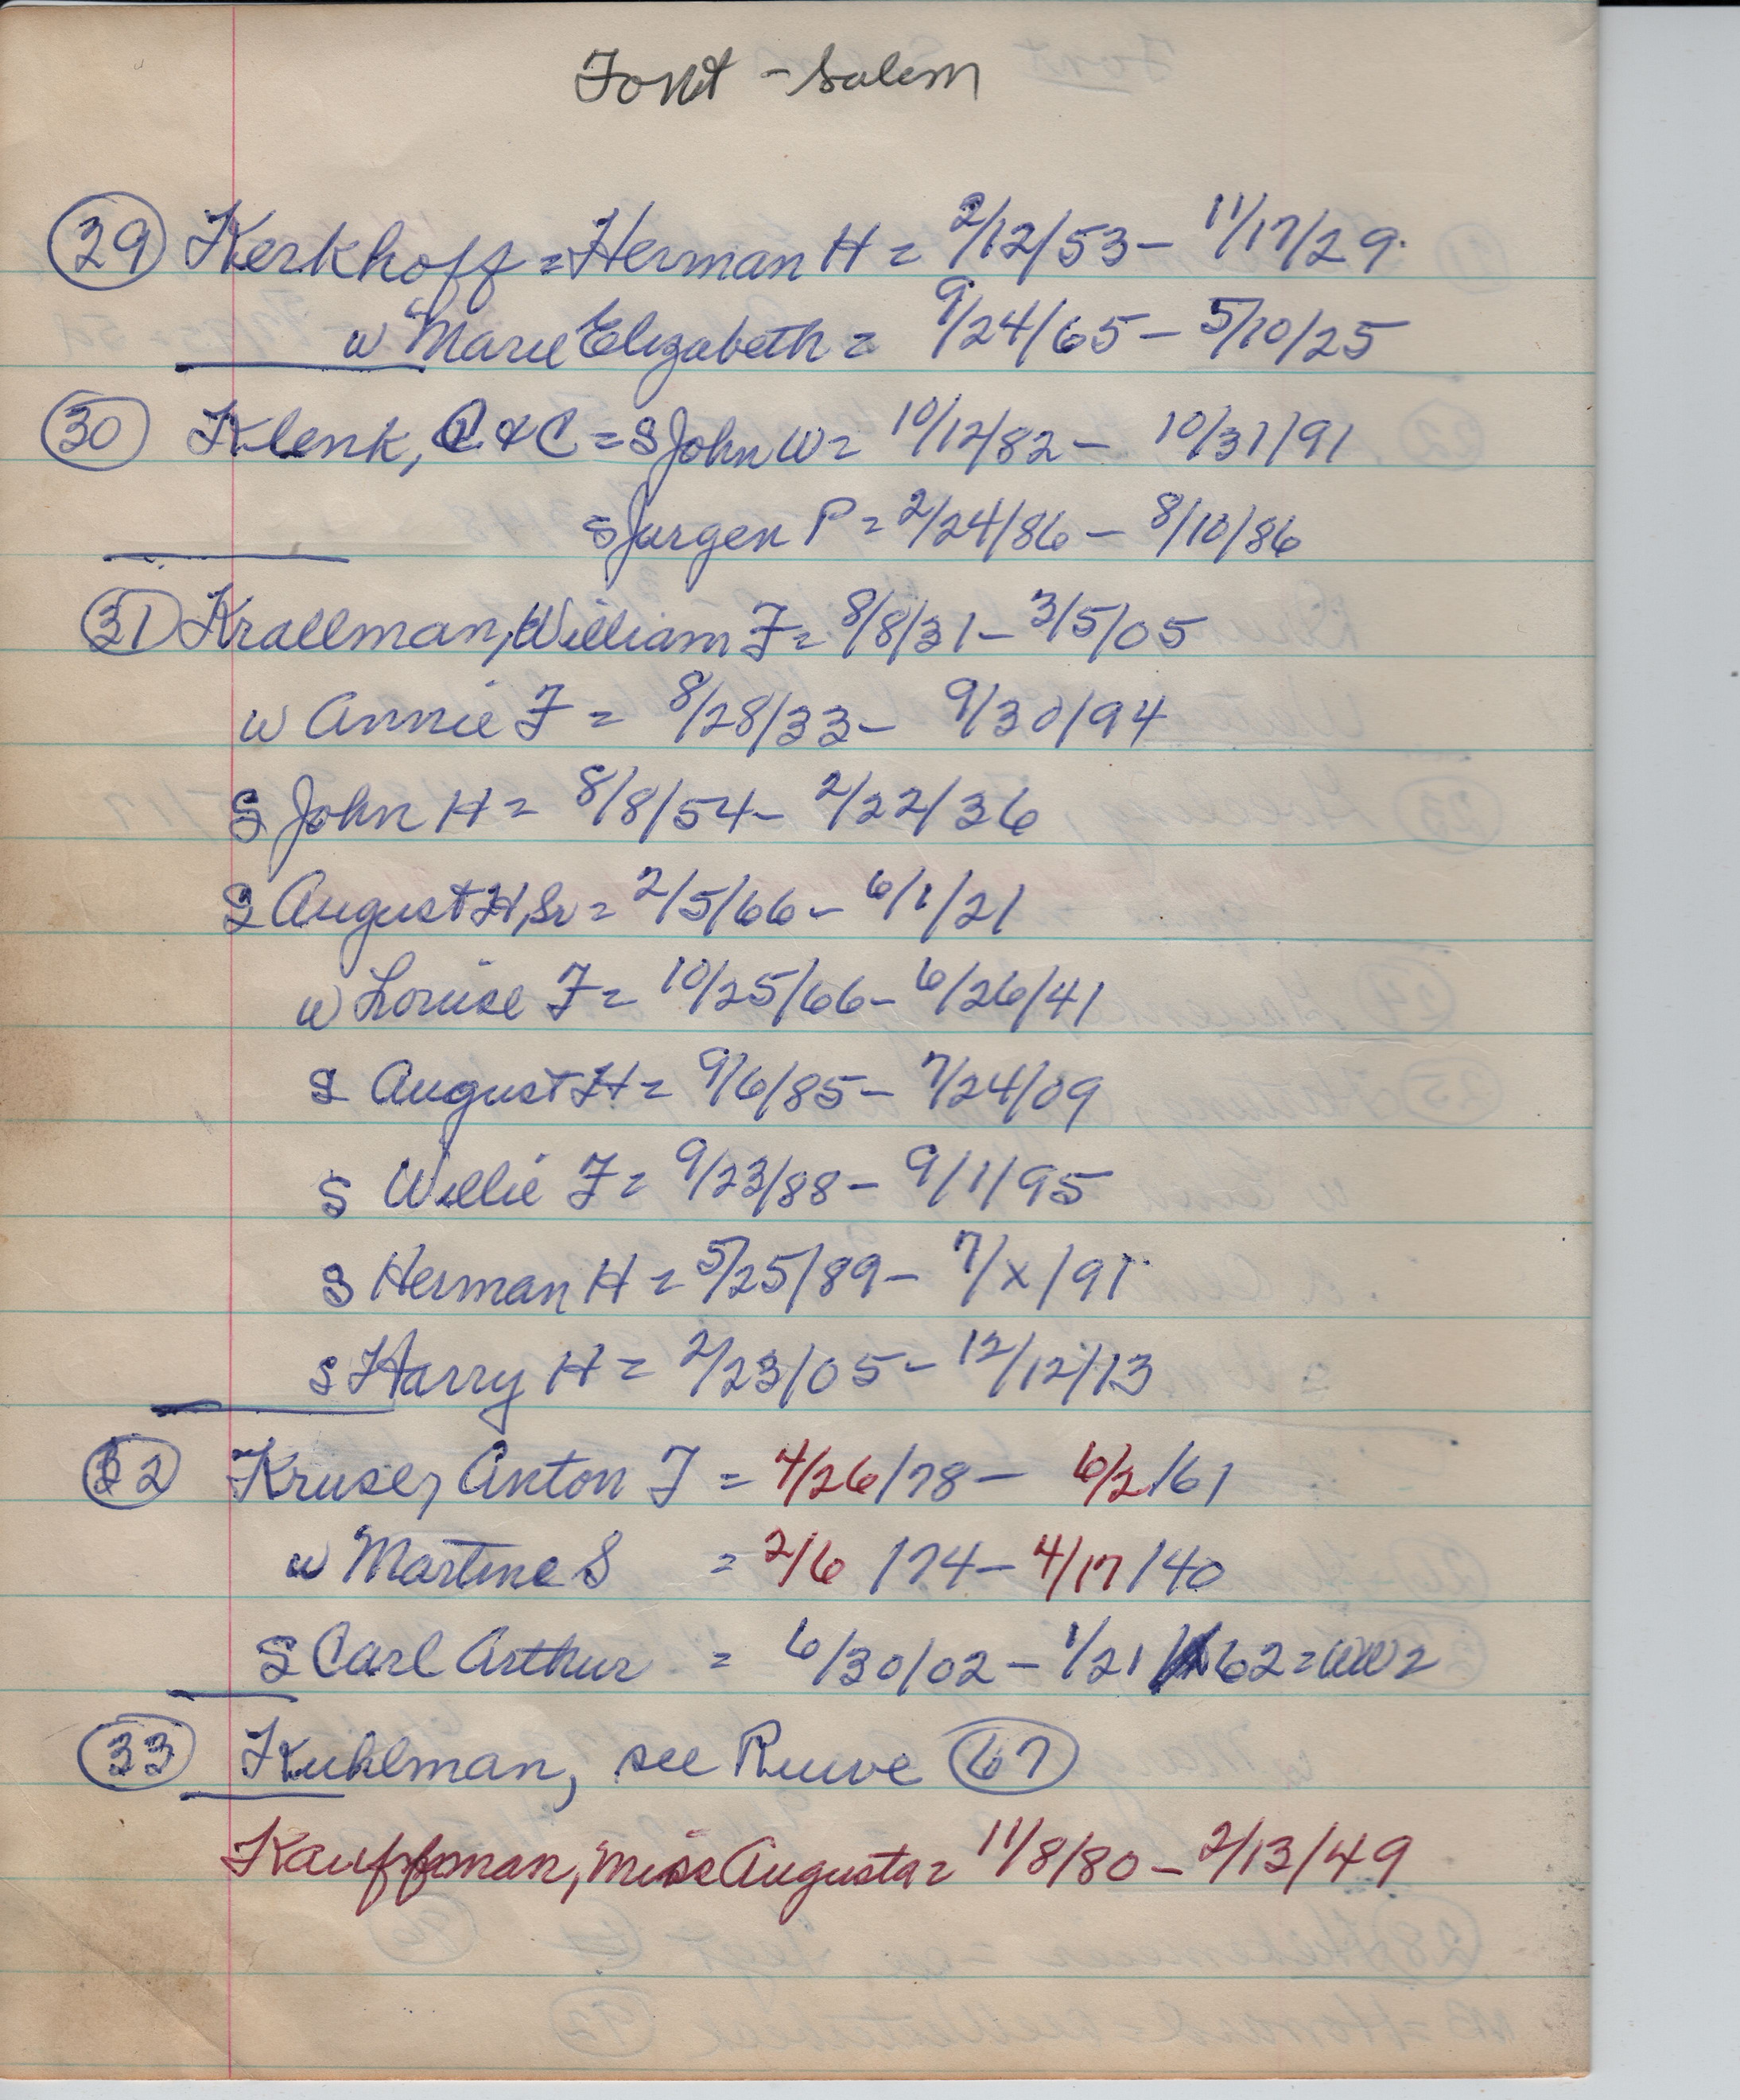 Font - Salem
29 Kerkhoff = Herman H = 2/12/53 - 11/17/29
w Marie Elizabeth = 9/24/65 - 5/10/25
30 Klenk, C & C = S John W = 10/12/82 - 10/31/91
S Jurgen P = 2/24/86 - 8/10/86
31 Krallman, William F = 8/8/31 - 3/5/05
w Annie F = 8/28/33 - 9/30/94
S John H = 8/8/54 - 2/22/36
S August H, Sr = 2/5/66 - 6/1/21
w Louise F = 10/25/66 - 6/26/41
S August H = 9/6/85 - 7/24/09
S Willie F = 9/23/88 - 9/1/95
S Herman H = 5/25/89 - 7/x/91
S Harry H = 2/23/05 - 12/12/13
32 Kruse, Anton J = 4/26/78 - 6/2/61
w Martine S = 2/6/74 - 4/17/40
S Carl Arthur = 6/30/02 - 1/21/62 = WW2
33 Kuhlman, see Ruwe 67
Kauffman, Miss Augusta = 11/8/80 - 2/13/49